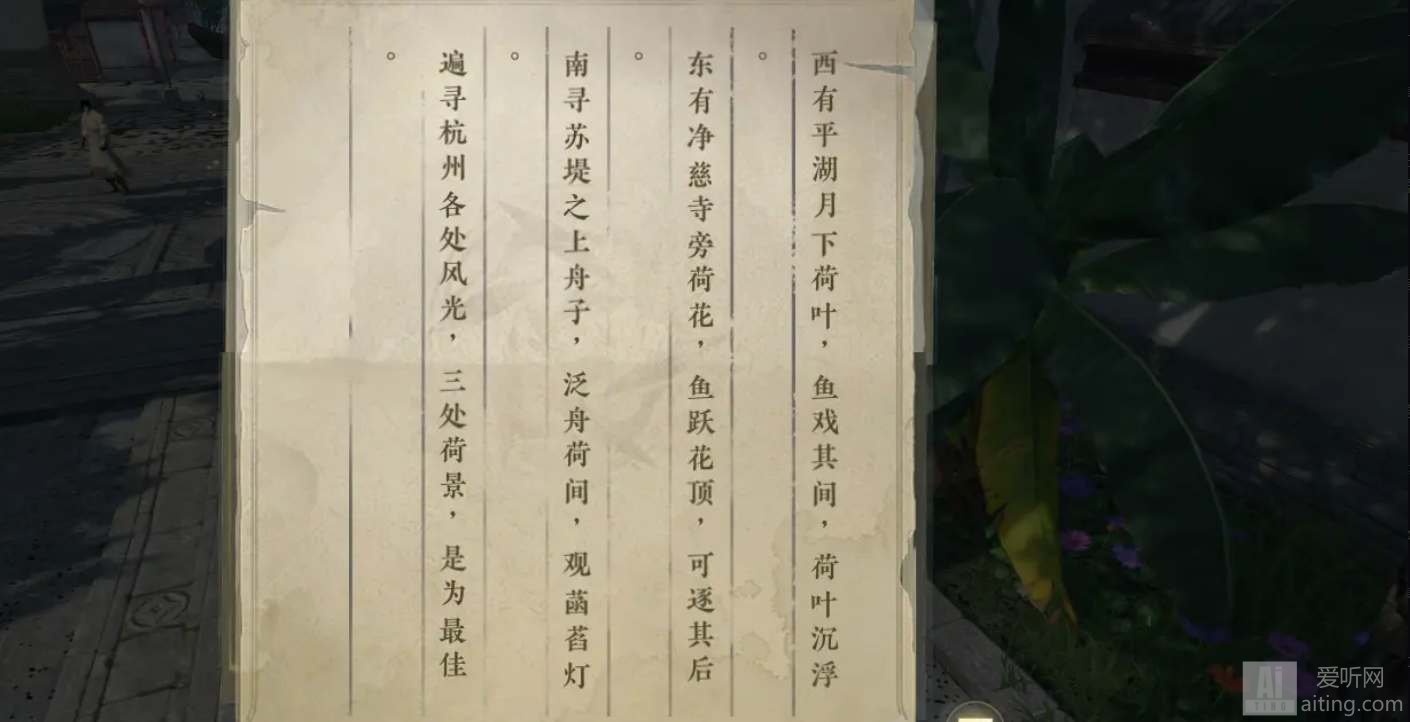 西有平湖月下荷叶，鱼戏其间，荷叶沉浮
。
东有净慈寺旁荷花，鱼跃花顶，可逐其后
。
南寻苏堤之上舟子，泛舟荷间，观菡萏灯
。
遍寻杭州各处风光，三处荷景，是为最佳
。
Ai
TING
爱听网
aiting.com